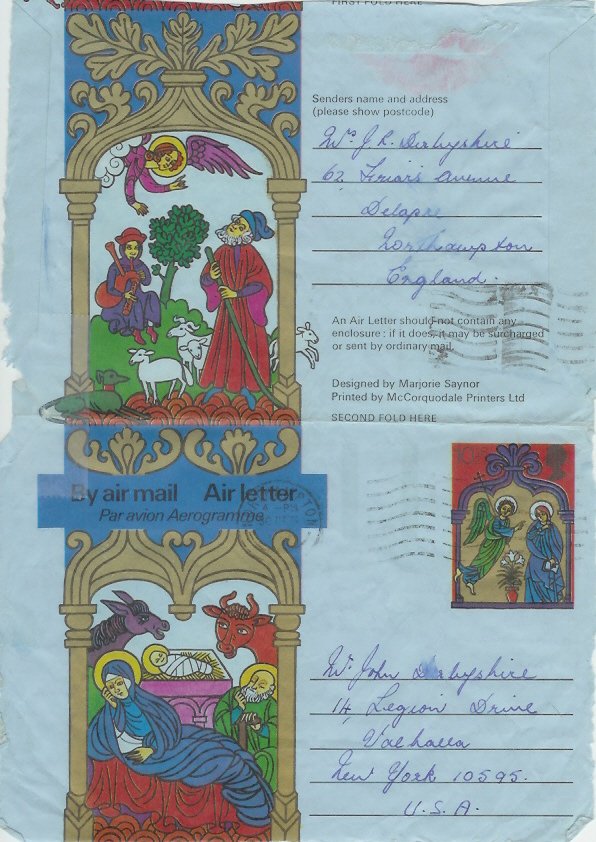 FIRST FOLD HERE
Senders name and address
(please show postcode)
Mrs J. R. Derbyshire
62 Friars Avenue
Delapre
Northampton
England.
An Air Letter should not contain any
enclosure : if it does, it may be surcharged
or sent by ordinary mail.
Designed by Marjorie Saynor
Printed by McCorquodale Printers Ltd
SECOND FOLD HERE
By air mail Air letter
Par avion Aerogramme
Mr. John Derbyshire
14, Legion Drive
Valhalla
New York 10595.
U.S.A.